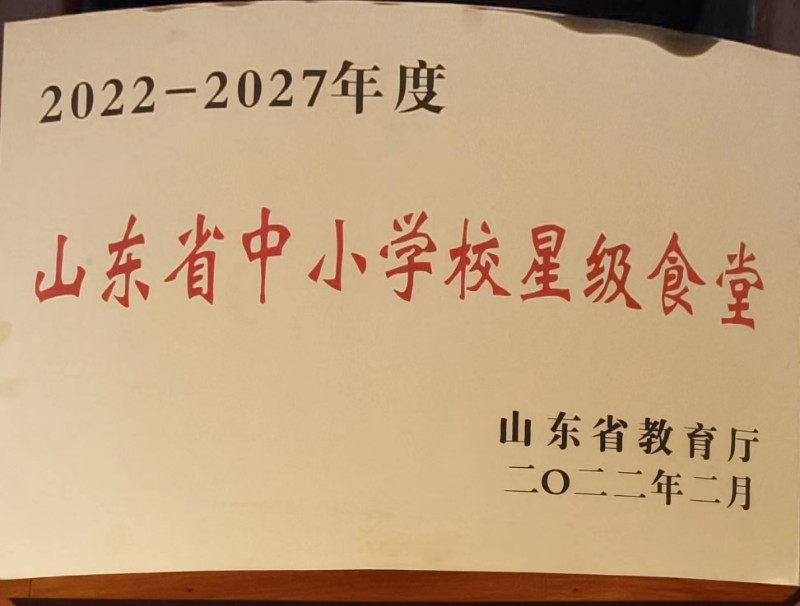 2022-2027年度
山东省中小学校星级食堂
山东省教育厅
二〇二二年二月